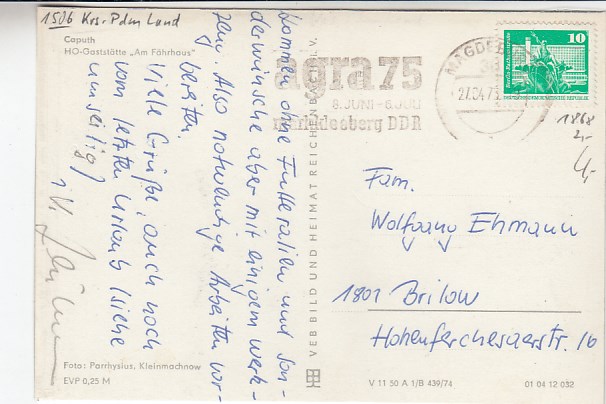 1506 Krs. Pdm Land
Caputh
HO-Gaststätte „Am Fährhaus"
kommen ohne Futteralien und Son-
derwünsche aber mit einigem Werk-
zeug. Also notwendige Arbeiten vor-
bereiten.
Viele Grüße, auch noch
vom letzten Urlaub (siehe
umseitig)
Foto: Parrhysius, Kleinmachnow
EVP 0,25 M
VEB BILD UND HEIMAT REICHENBACH i. V.
agra 75
8. JUNI - 6. JULI
markkleeberg DDR
MAGDEBURG
27.04.75
10
1868
2,-
4,-
Fam.
Wolfgang Ehmann
1801 Brilow
Hohenferchesarerstr. 16
V 11 50 A 1/B 439/74
01 04 12 032